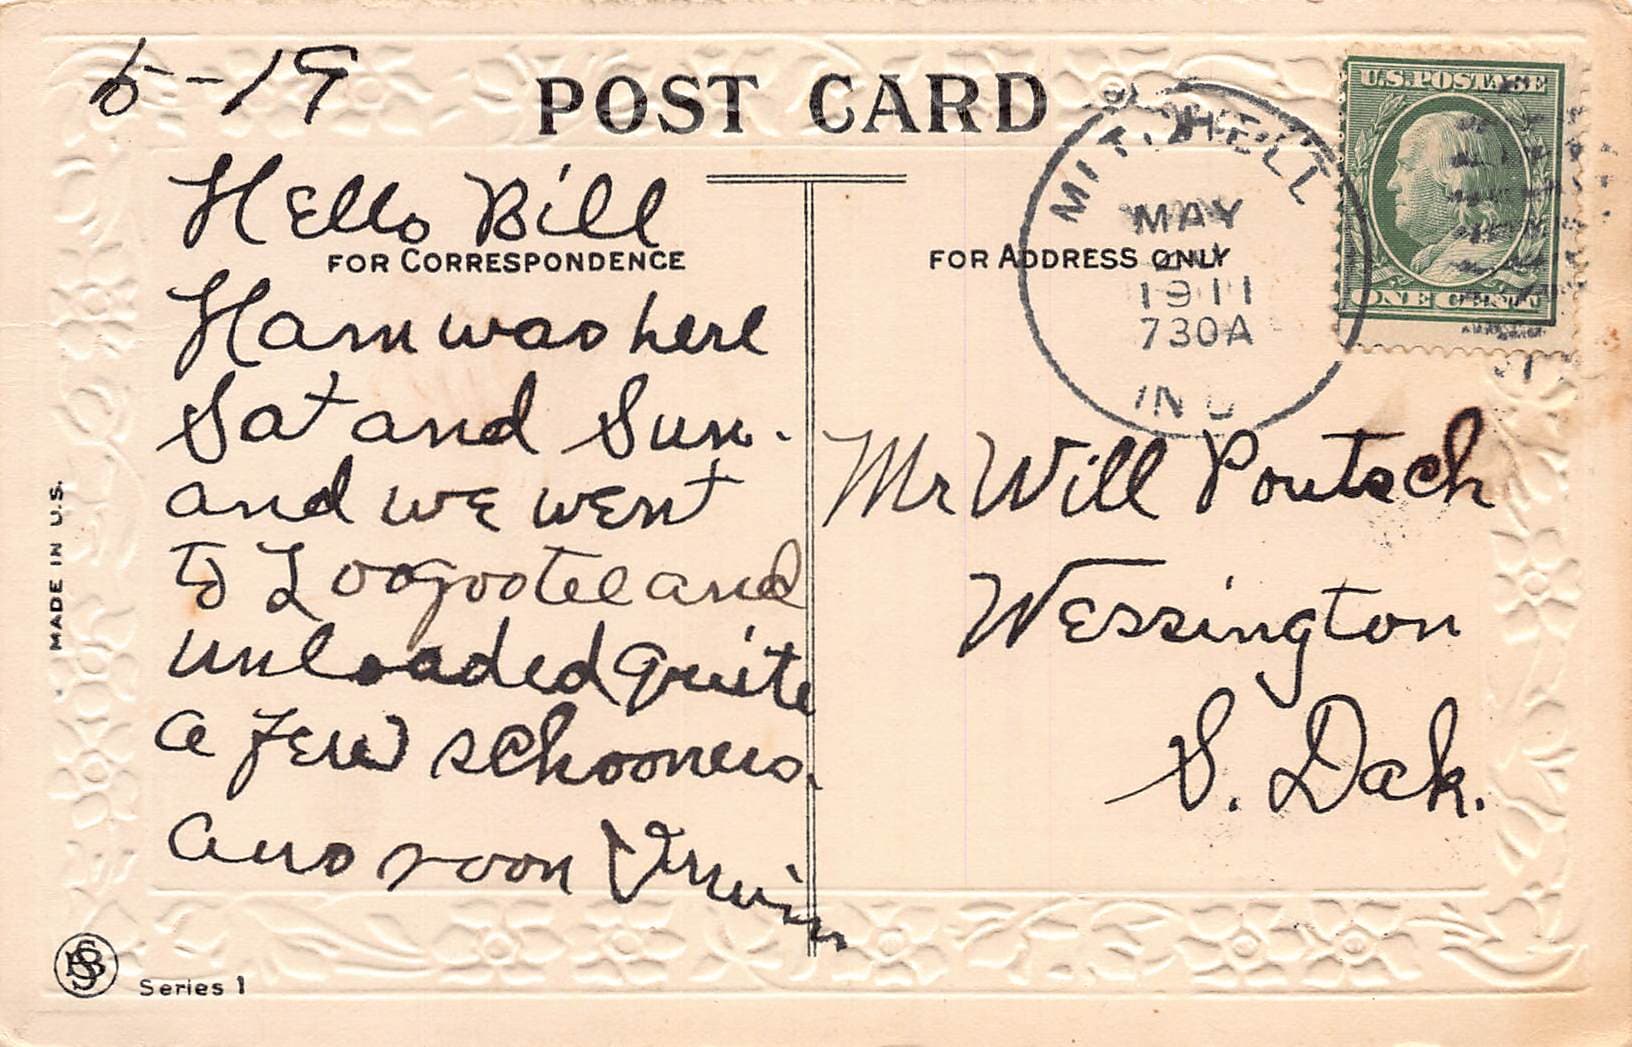 5-19
POST CARD
U.S. POSTAGE
ONE CENT
MITCHELL
MAY
1911
730A
IND
FOR CORRESPONDENCE
FOR ADDRESS ONLY
Hello Bill
Ham was here
Sat and Sun.
and we went
to Loogootee and
unloaded quite
a few schooners.
Ans soon
Mr Will Poutsch
Wessington
S. Dak.
MADE IN U.S.
Series 1